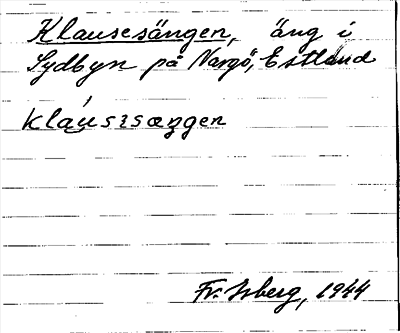 Klausesängen, äng i
Sydbyn på Nargö, Estland
kláusɪsæŋen
Fr. Isberg, 1944